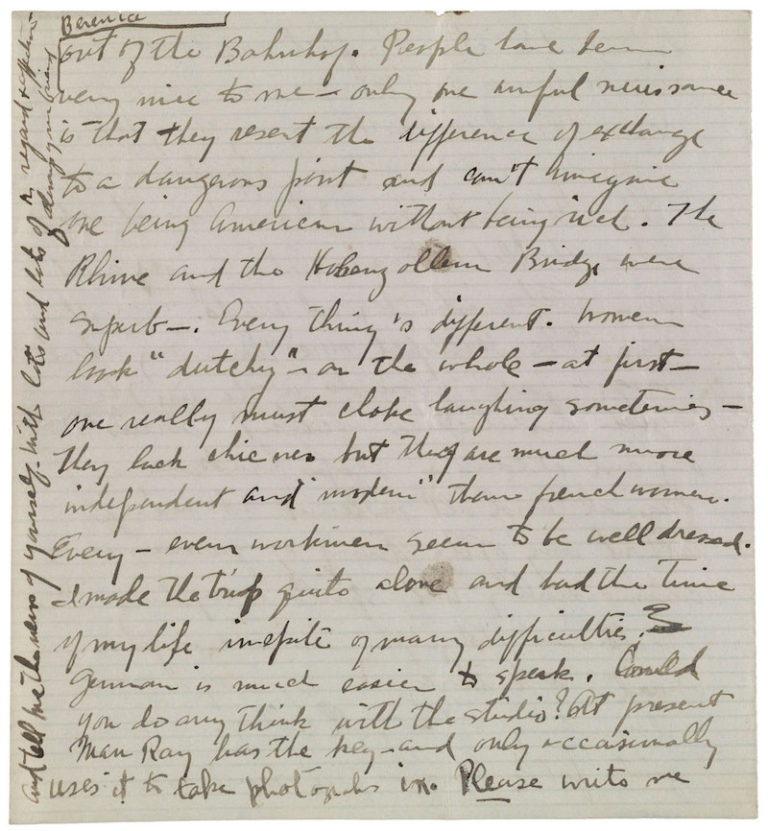 out of the Bahnhof. People have been
very nice to me – only one awful neuissance
is that they resent the difference of exchange
to a dangerous point and can't imagine
one being American without being rich. The
Rhine and the Hohenzollern Bridge were
superb –. Every thing's different. Women
look "dutchy" – on the whole – at first –
one really must choke laughing sometimes –
they lack chicness but they are much more
independent and "modern" than french women.
Every – even workmen seem to be well dressed.
I made the trip quite alone and had the time
of my life inspite of many difficulties.
German is much easier to speak. Could
you do any think with the studio? At present
Man Ray has the key – and only occasionally
uses it to take photographs in. Please write me
and tell me the news of yourself. With lots and lots of regard & affection
always your friend
Berenice